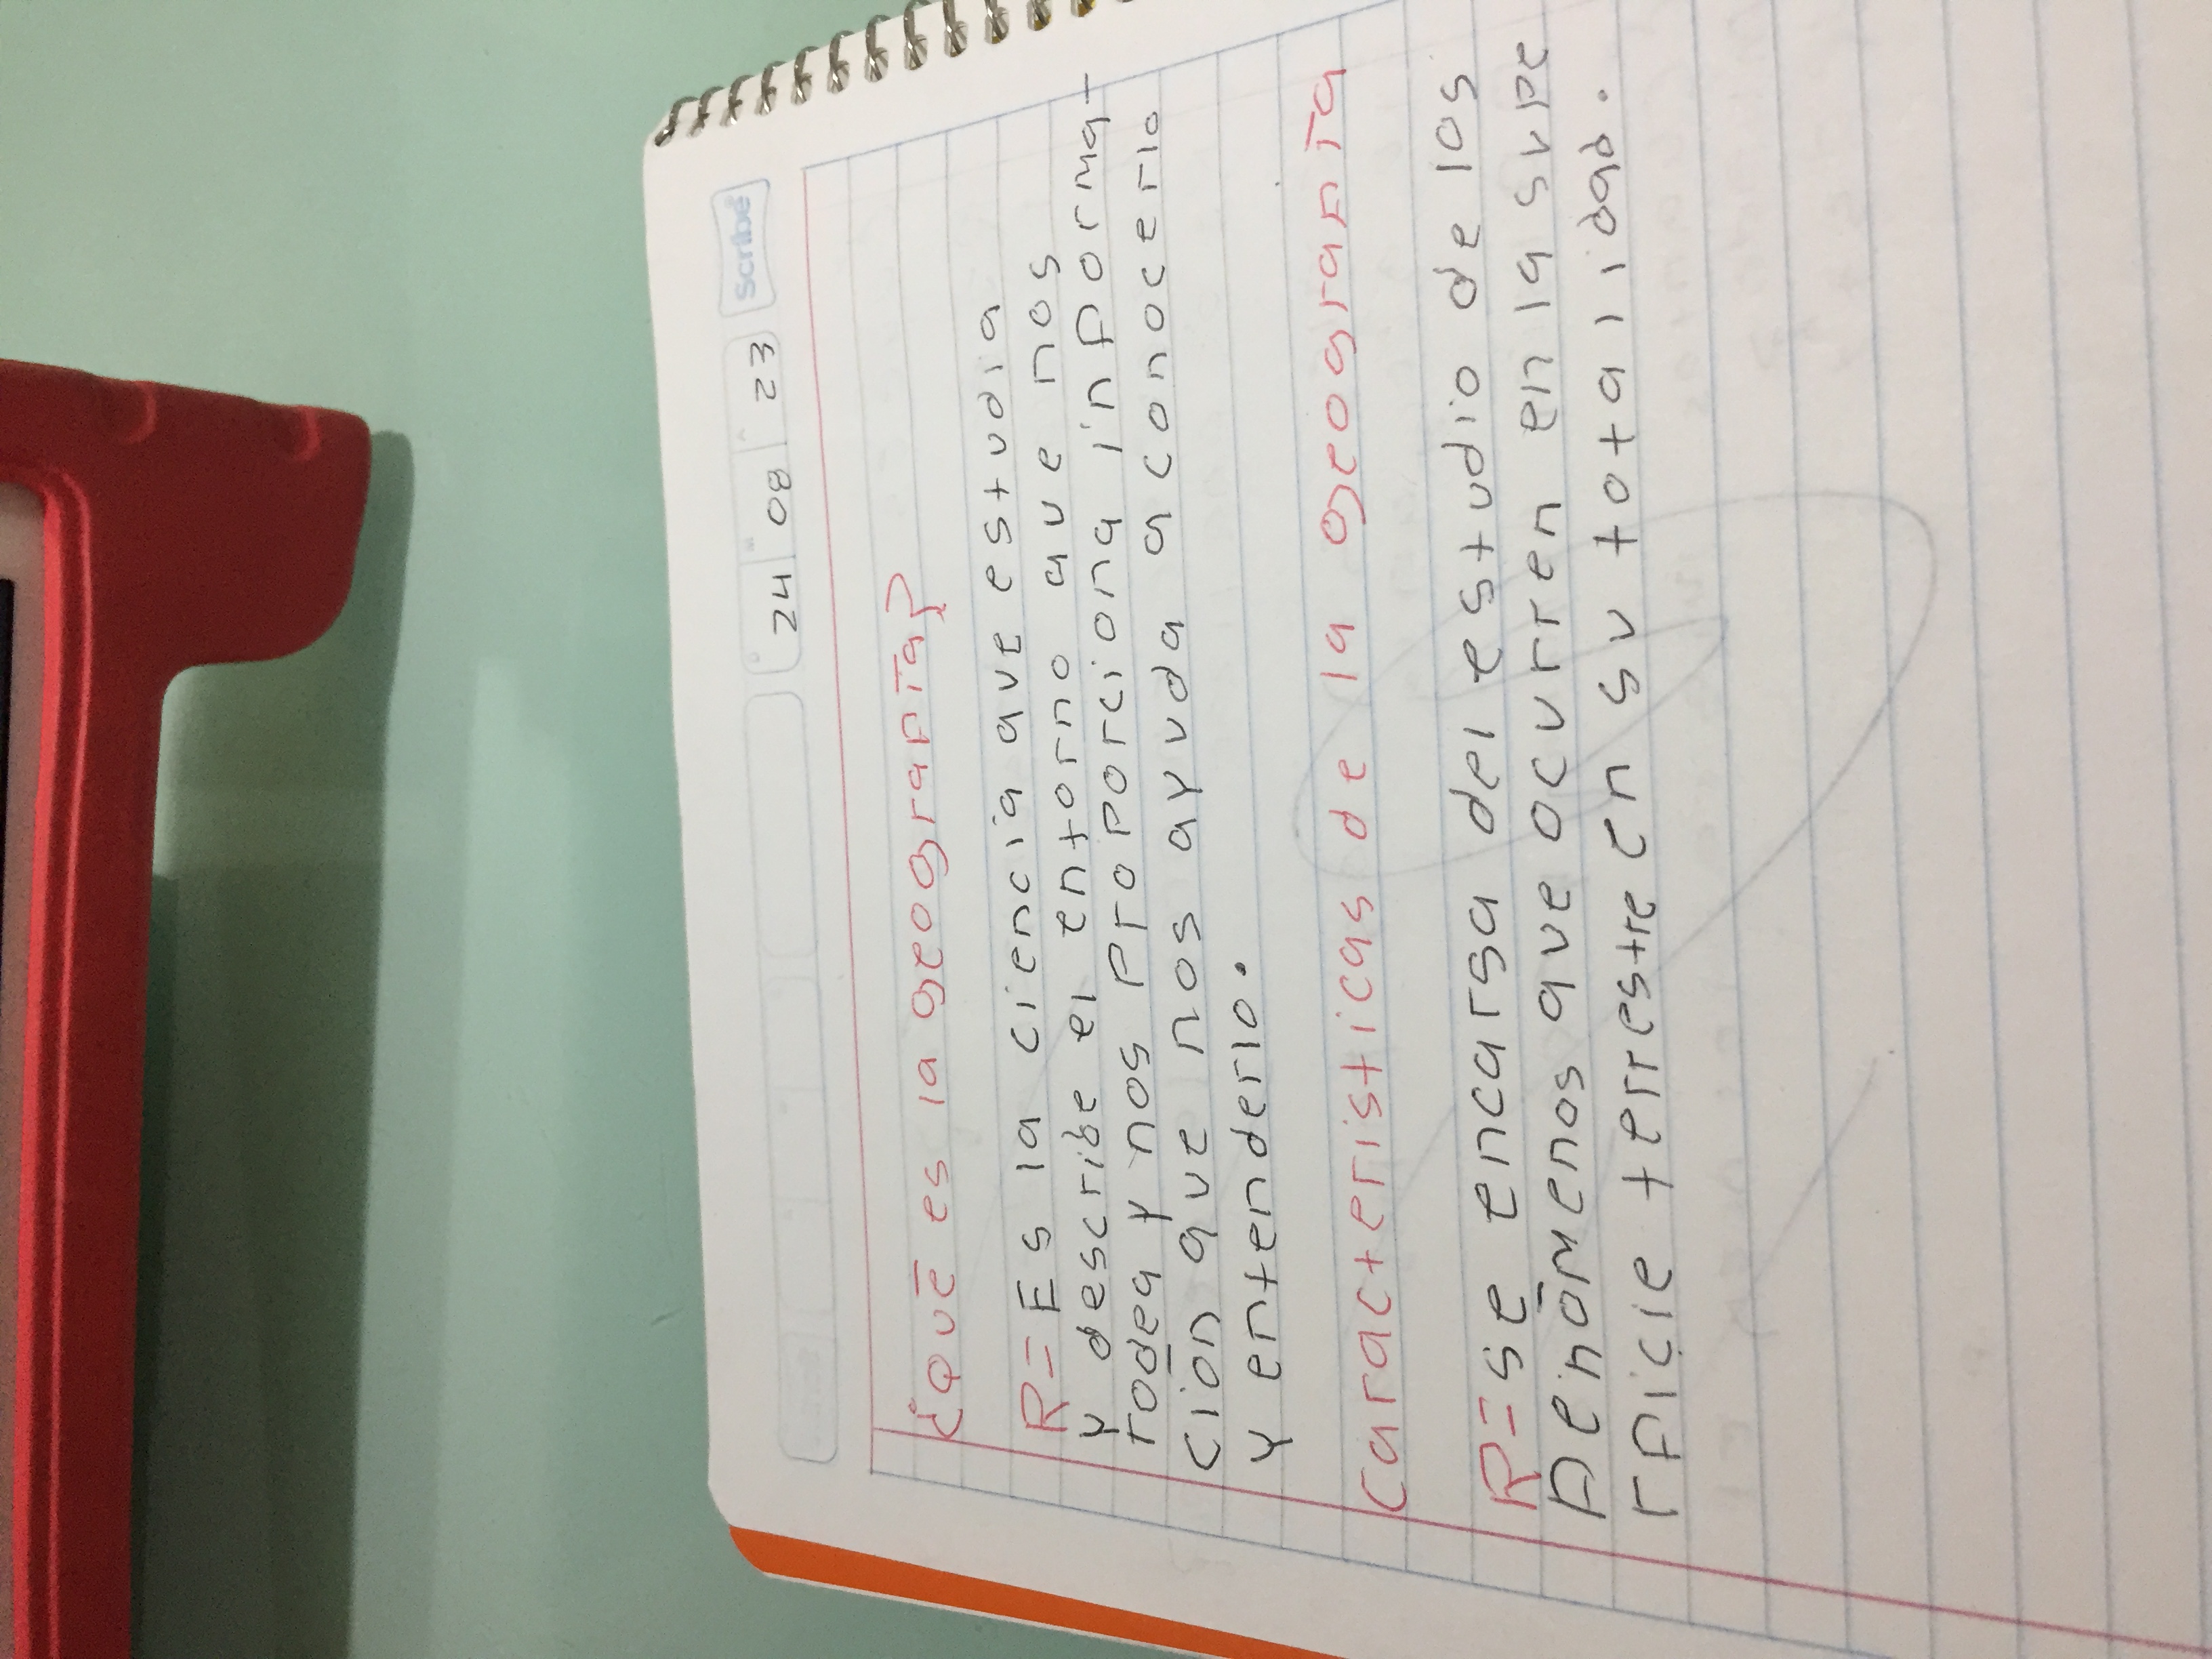 Scribe
24 08 23
¿Qué es la geografía?
R= Es la ciencia que estudia
y describe el entorno que nos
rodea y nos proporciona informa-
cion que nos ayuda a conocerlo
y entenderlo.
Características de la geografía
R= se encarsa del estudio de los
fenómenos que ocurren en la supe
rficie terrestre en su totalidad.